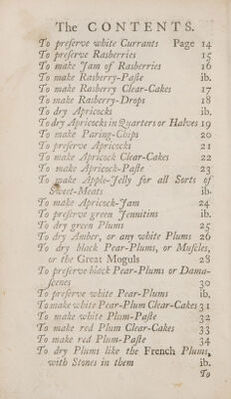 The CONTENTS.
To preserve white Currants Page 14
To preserve Rasberries 15
To make Jam of Rasberries 16
To make Rasberry-Paste ib.
To make Rasberry Clear-Cakes 17
To make Rasberry-Drops 18
To dry Apricocks ib.
To dry Apricocks in Quarters or Halves 19
To make Paring-Chips 20
To preserve Apricocks 21
To make Apricock Clear-Cakes 22
To make Apricock-Paste 23
To make Apple-Jelly for all Sorts of
Sweet-Meats ib.
To make Apricock-Jam 24
To preserve green Jennitins ib.
To dry green Plums 25
To dry Amber, or any white Plums 26
To dry black Pear-Plums, or Muscles,
or the Great Moguls 28
To preserve black Pear-Plums or Dama-
scenes 30
To preserve white Pear-Plums ib.
To make white Pear-Plum Clear-Cakes 31
To make white Plum-Paste 32
To make red Plum Clear-Cakes 33
To make red Plum-Paste 34
To dry Plums like the French Plums,
with Stones in them ib.
To